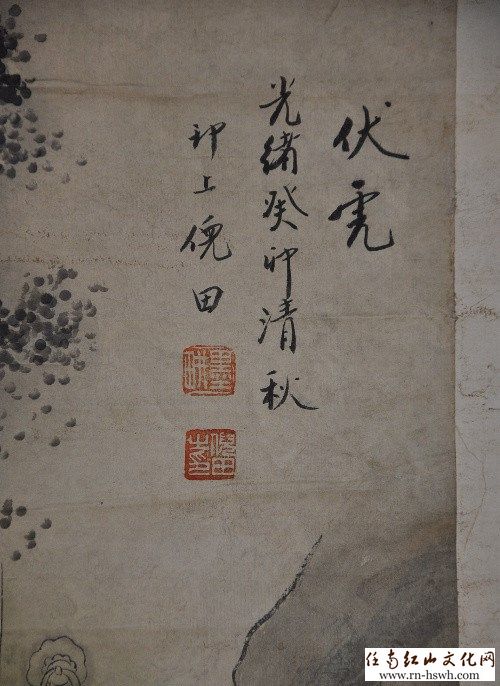 伏虎
光緒癸卯清秋
邗上倪田
任南红山文化网
www.rn-hswh.com